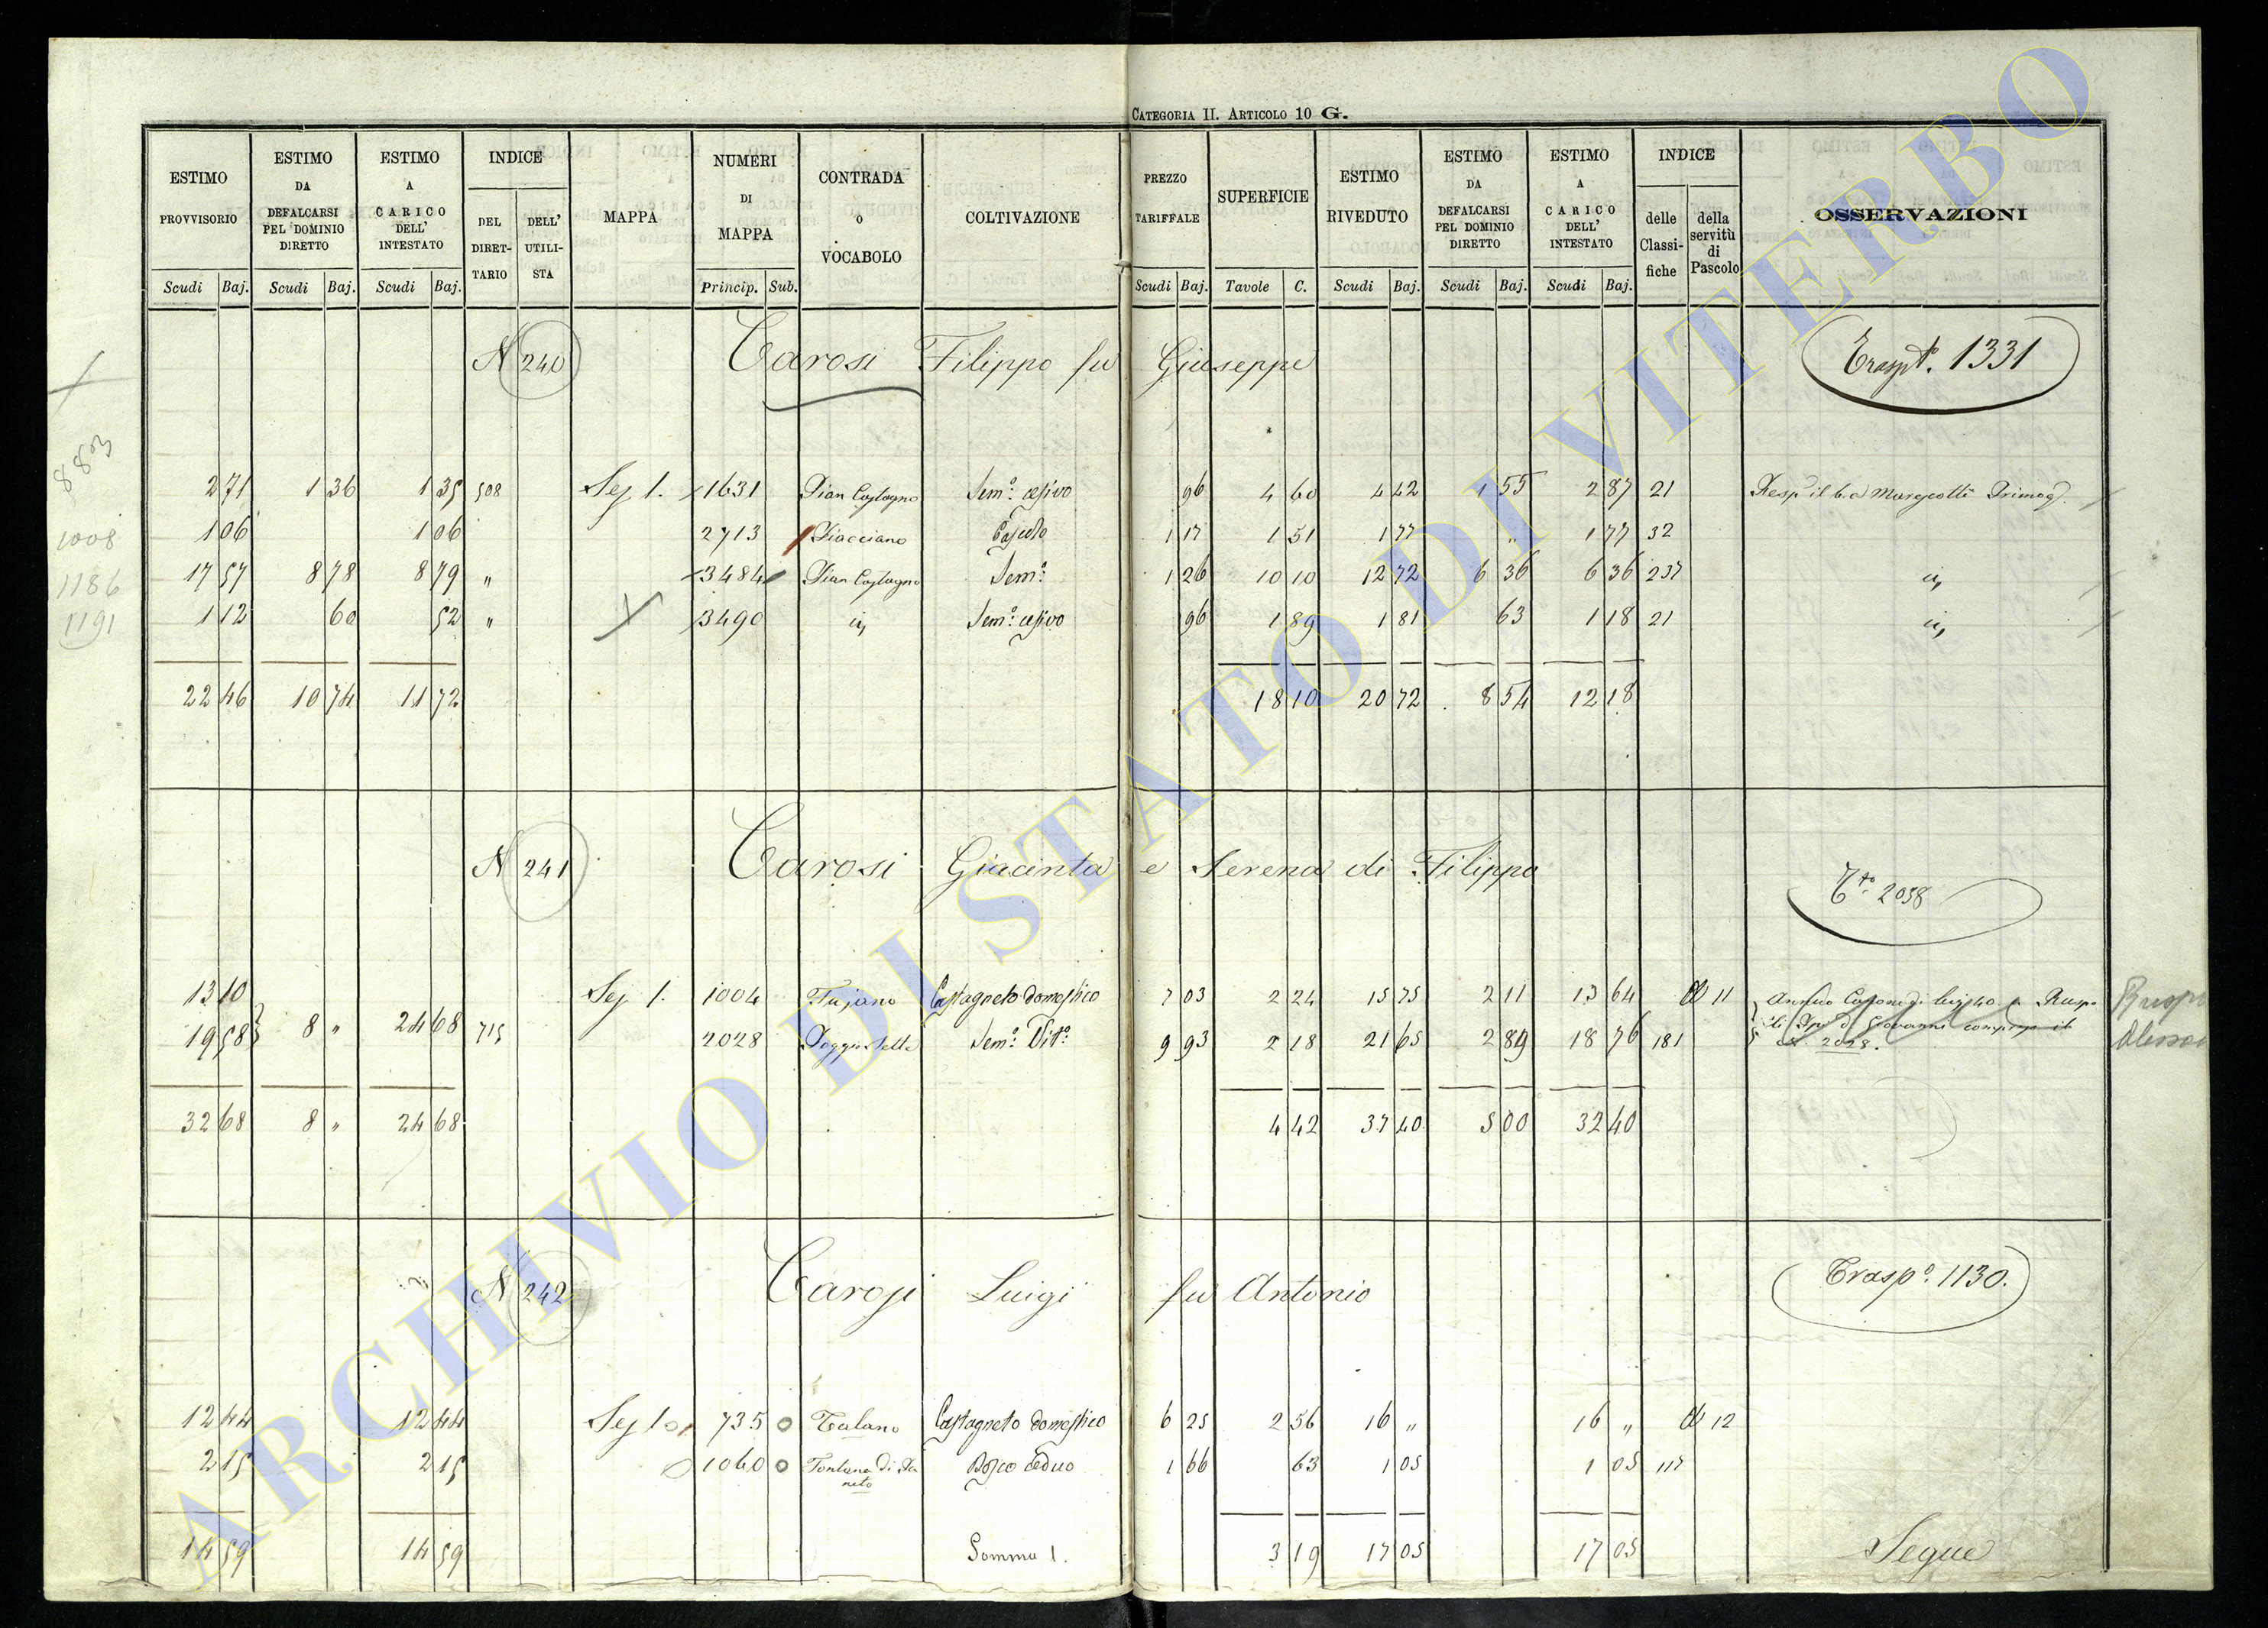 CATEGORIA II. ARTICOLO 10 G.
ESTIMO PROVVISORIO Scudi Baj.
ESTIMO DA DEFALCARSI PEL DOMINIO DIRETTO Scudi Baj.
ESTIMO A CARICO DELL' INTESTATO Scudi Baj.
INDICE DEL DIRET-TARIO DELL' UTILI-STA
MAPPA
NUMERI DI MAPPA Princip. Sub.
CONTRADA o VOCABOLO
COLTIVAZIONE
PREZZO TARIFFALE Scudi Baj.
SUPERFICIE Tavole C.
ESTIMO RIVEDUTO Scudi Baj.
ESTIMO DA DEFALCARSI PEL DOMINIO DIRETTO Scudi Baj.
ESTIMO A CARICO DELL' INTESTATO Scudi Baj.
INDICE delle Classi-fiche della servitù di Pascolo
OSSERVAZIONI
N 240 Carosi Filippo fu Giuseppe Traspto. 1331
883 2 71 1 36 1 35 508 Sez 1. 1631 Pian Castagno Semo. cesivo 96 4 60 4 42 1 55 2 87 21
1008 1 06 1 06 2713 Piacciano Pascolo 1 17 1 51 1 77 " 1 77 32
1186 17 57 8 78 8 79 " 3484 Pian Castagno Semo. 1 26 10 10 12 72 6 36 6 36 237 id
1191 1 12 60 52 " 3490 id Semo. cesivo 96 1 89 1 81 63 1 18 21 id
22 46 10 74 11 72 18 10 20 72 8 54 12 18
N 241 Carosi Giacinta e Serena di Filippo Tto. 2058
13 10 Sez 1. 1004 Fujano Castagneto domestico 7 03 2 24 15 75 2 11 13 64 11
19 58 8 " 24 68 715 2028 Semo. Vito. 9 93 2 18 21 65 2 89 18 76 181
2028.
32 68 8 " 24 68 4 42 37 40 5 00 32 40
N 242 Carosi Luigi fu Antonio Traspo. 1130.
12 44 12 44 Sez 1 735 Talano Castagneto domestico 6 25 2 56 16 " 16 " 12
2 15 2 15 1060 Fontana di Bosco ceduo 1 66 63 1 05 1 05 117
14 59 14 59 Somma 1. 3 19 17 05 17 05 Segue
ARCHIVIO DI STATO DI VITERBO